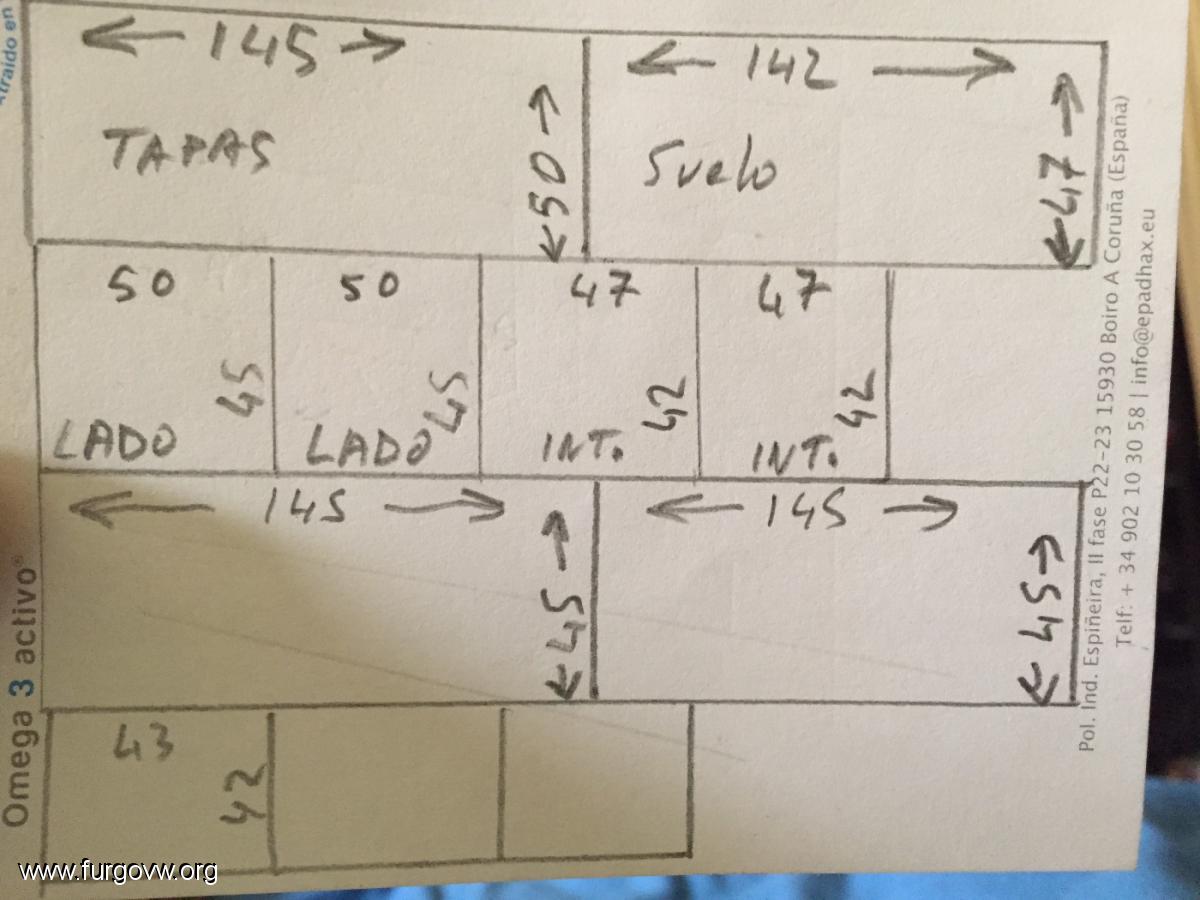 ← 145 →
← 142 →
TAPAS
← 50 →
Suelo
← 47 →
50
50
47
47
45
45
42
42
LADO
LADO
INT.
INT.
← 145 →
← 145 →
← 45 →
← 45 →
43
42
Omega 3 activo®
Pol. Ind. Espiñeira, II fase P22-23 15930 Boiro A Coruña (España)
Telf: + 34 902 10 30 58 | info@epadhax.eu
www.furgovw.org